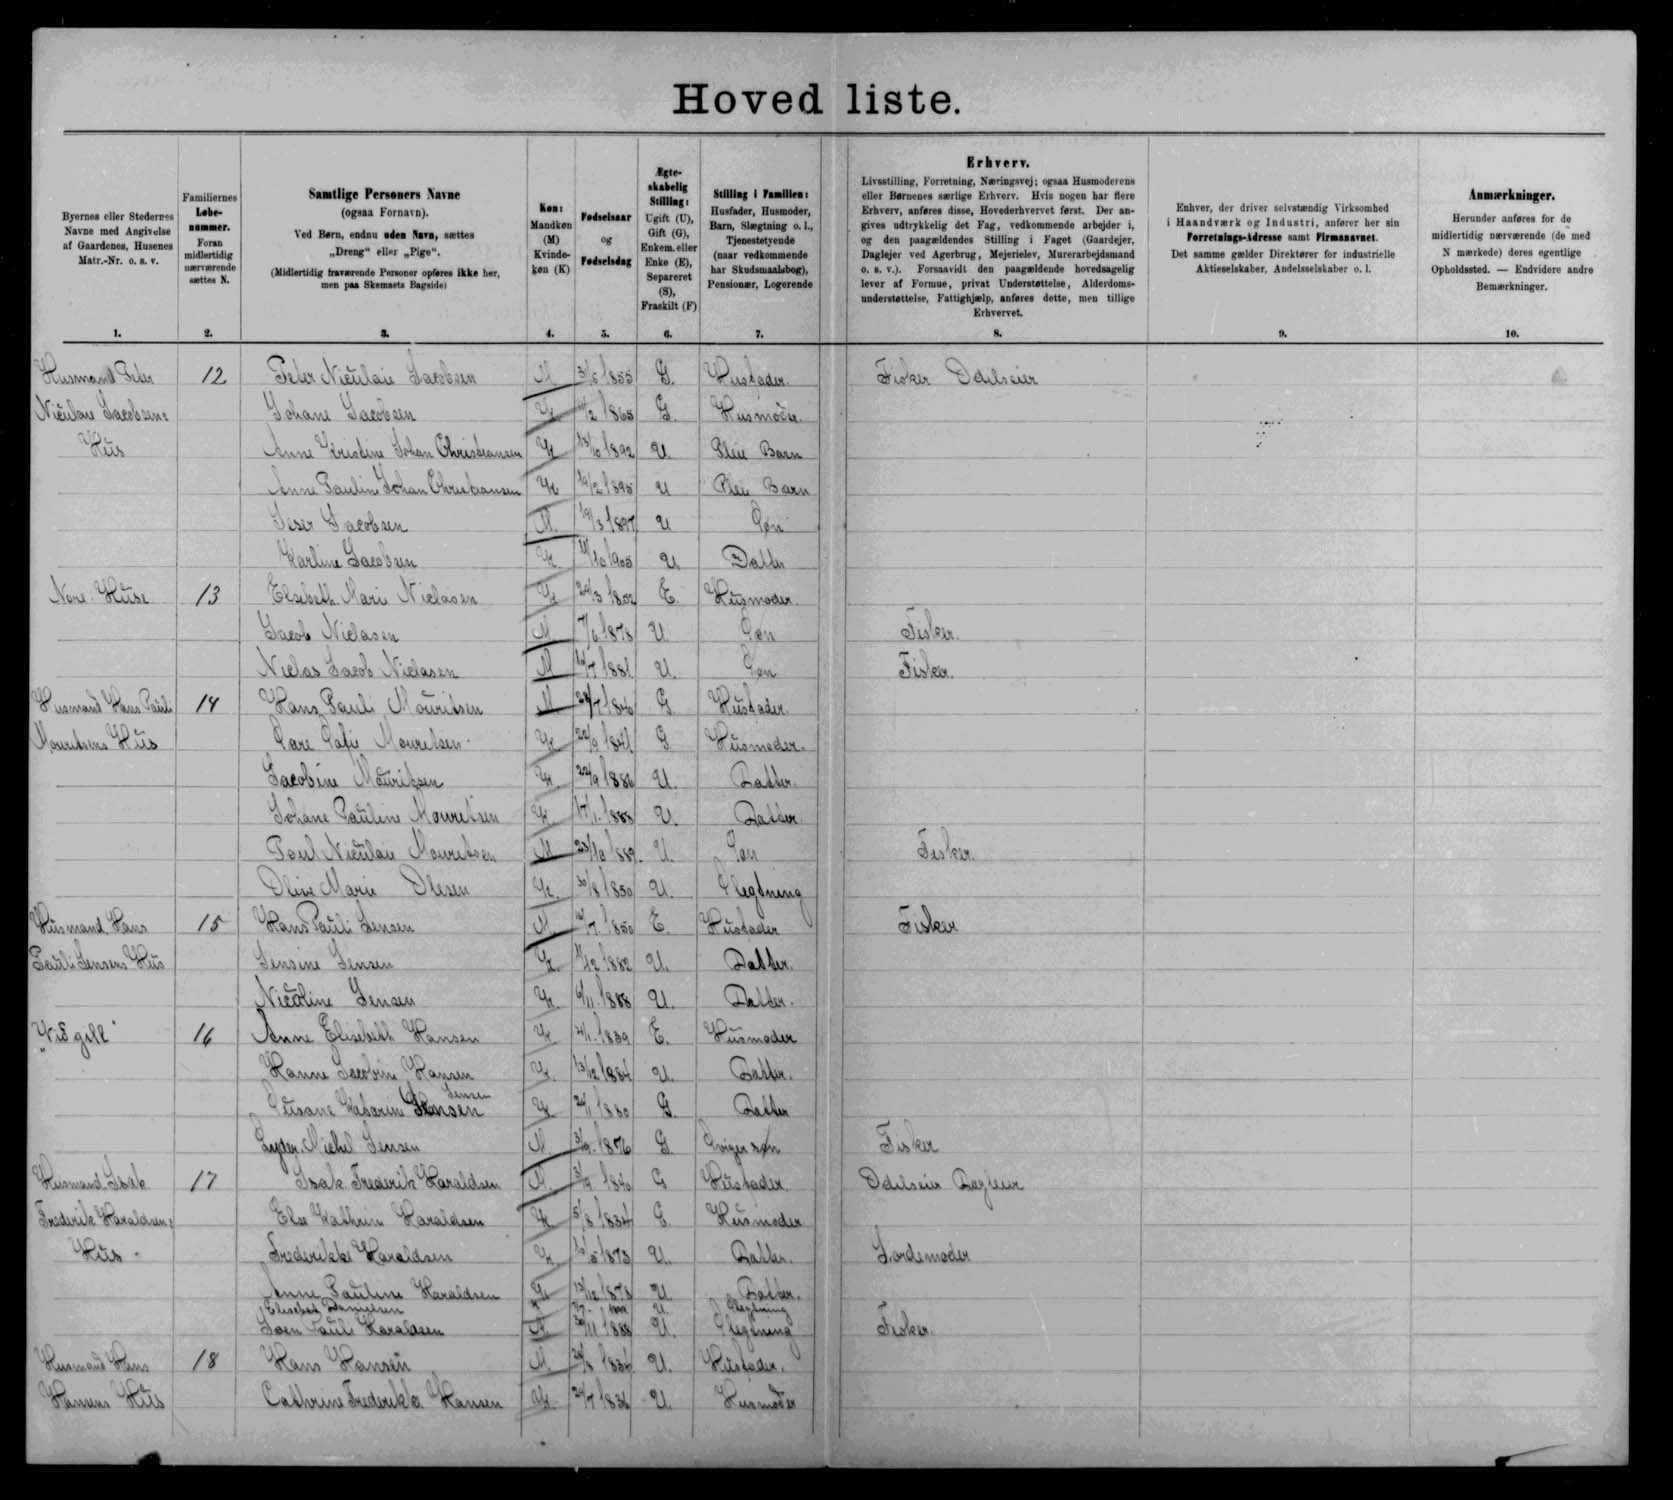 Hoved liste.
Byernes eller Stedernes Navne med Angivelse af Gaardenes, Husenes Matr.-Nr. o. s. v.
Familiernes Løbenummer. Foran midlertidig nærværende sættes N.
Samtlige Personers Navne (ogsaa Fornavn). Ved Børn, endnu uden Navn, sættes „Dreng“ eller „Pige“. (Midlertidig fraværende Personer opføres ikke her, men paa Skemaets Bagside)
Køn: Mandkøn (M) Kvindekøn (K)
Fødselsaar og Fødselsdag
Ægteskabelig Stilling: Ugift (U), Gift (G), Enkem. eller Enke (E), Separeret (S), Fraskilt (F)
Stilling i Familien: Husfader, Husmoder, Barn, Slægtning o. l., Tjenestetyende (naar vedkommende har Skudsmaalsbog), Pensionær, Logerende
Erhverv. Livsstilling, Forretning, Næringsvej; ogsaa Husmoderens eller Børnenes særlige Erhverv. Hvis nogen har flere Erhverv, anføres disse, Hovederhvervet først. Der angives udtrykkelig det Fag, vedkommende arbejder i, og den paagældendes Stilling i Faget (Gaardejer, Daglejer ved Agerbrug, Mejerielev, Murerarbejdsmand o. s. v.). Forsaavidt den paagældende hovedsagelig lever af Formue, privat Understøttelse, Alderdomsunderstøttelse, Fattighjælp, anføres dette, men tillige Erhvervet.
Enhver, der driver selvstændig Virksomhed i Haandværk og Industri, anfører her sin Forretnings-Adresse samt Firmanavnet. Det samme gælder Direktører for industrielle Aktieselskaber, Andelsselskaber o. l.
Anmærkninger. Herunder anføres for de midlertidig nærværende (de med N mærkede) deres egentlige Opholdssted. — Endvidere andre Bemærkninger.
1. 2. 3. 4. 5. 6. 7. 8. 9. 10.
Husmand Peter 12 Peter Niculaie Jacobsen M 31/5 1855 G. Husfader. Fisker Odelseier
Niculaie Jacobsens Johane Jacobsen K 1865 G. Husmoder.
Hus Anne Kristine Johan Christiansen K 13/10 1892 U. Pleie Barn
Anne Pauline Johan Christiansen K 19/2 1895 U Pleie Barn
Jacobsen M. 19/3 1897 U Søn
Karline Jacobsen K. 11/10 1905 U. Datter
Huse 13 Elsebeth Marie Niclasen K 24/3 1852 E. Husmoder.
Jacob Niclasen M 7/6 1878 U. Søn Fisker.
Niclas Jacob Niclasen M 1881 U. Søn Fisker.
Husmand Hans Pauli 14 Hans Pauli Mouritsen M 28/7 1840 G. Husfader.
Mouritsens Hus Mouritsen K 22/9 1841 G. Husmoder.
Jacobine Mouritsen K. 22/9 1886 U. Datter.
Johane Pauline Mouritsen K. 17/1 1888 U. Datter
Poul Niculaie Mouritsen M 23/10 1889. U. Søn Fisker.
Olive Marie Olesen K. 30/8 1850 U. Slegtning
Husmand Hans 15 Hans Pauli Jensen M. 1850 E. Husfader Fisker
Pauli Jensens Hus Jensine Jensen K. 1882 U. Datter.
Nicoline Jensen K. 6/11. 1888 U. Datter.
„Við gill“ 16 Anne Elisebeth Hansen K 1839 E. Husmoder
Hanne Jacobine Hansen K. 13/12 1884 U. Datter.
Susane Katarin Jensen Jensen K 24/1 1880 G. Datter
Michel Jensen M 3/9. 1876 G. Sviger søn Fisker
Husmand Isak 17 Isak Frederik Haraldsen M. 3/9 1840 G Husfader. Odelseier
Frederik Haraldsens Else Kathrin Haraldsen K 5/8 1834 G. Husmoder
Hus Frederikke Haraldsen K. 1873 U. Datter. Jordemoder
Anne Pauline Haraldsen K 13/12 1878 U. Datter.
Elisebet Danielsen U. Slegtning
Joen Pauli Haraldsen M 30/11 1888 U. Slegtning Fisker.
Husmand Hans 18 Hans Hansen M. 1834 U. Husfader.
Hansens Hus Cathrine Frederikke Hansen K. 24/7 1836 U. Husmoder